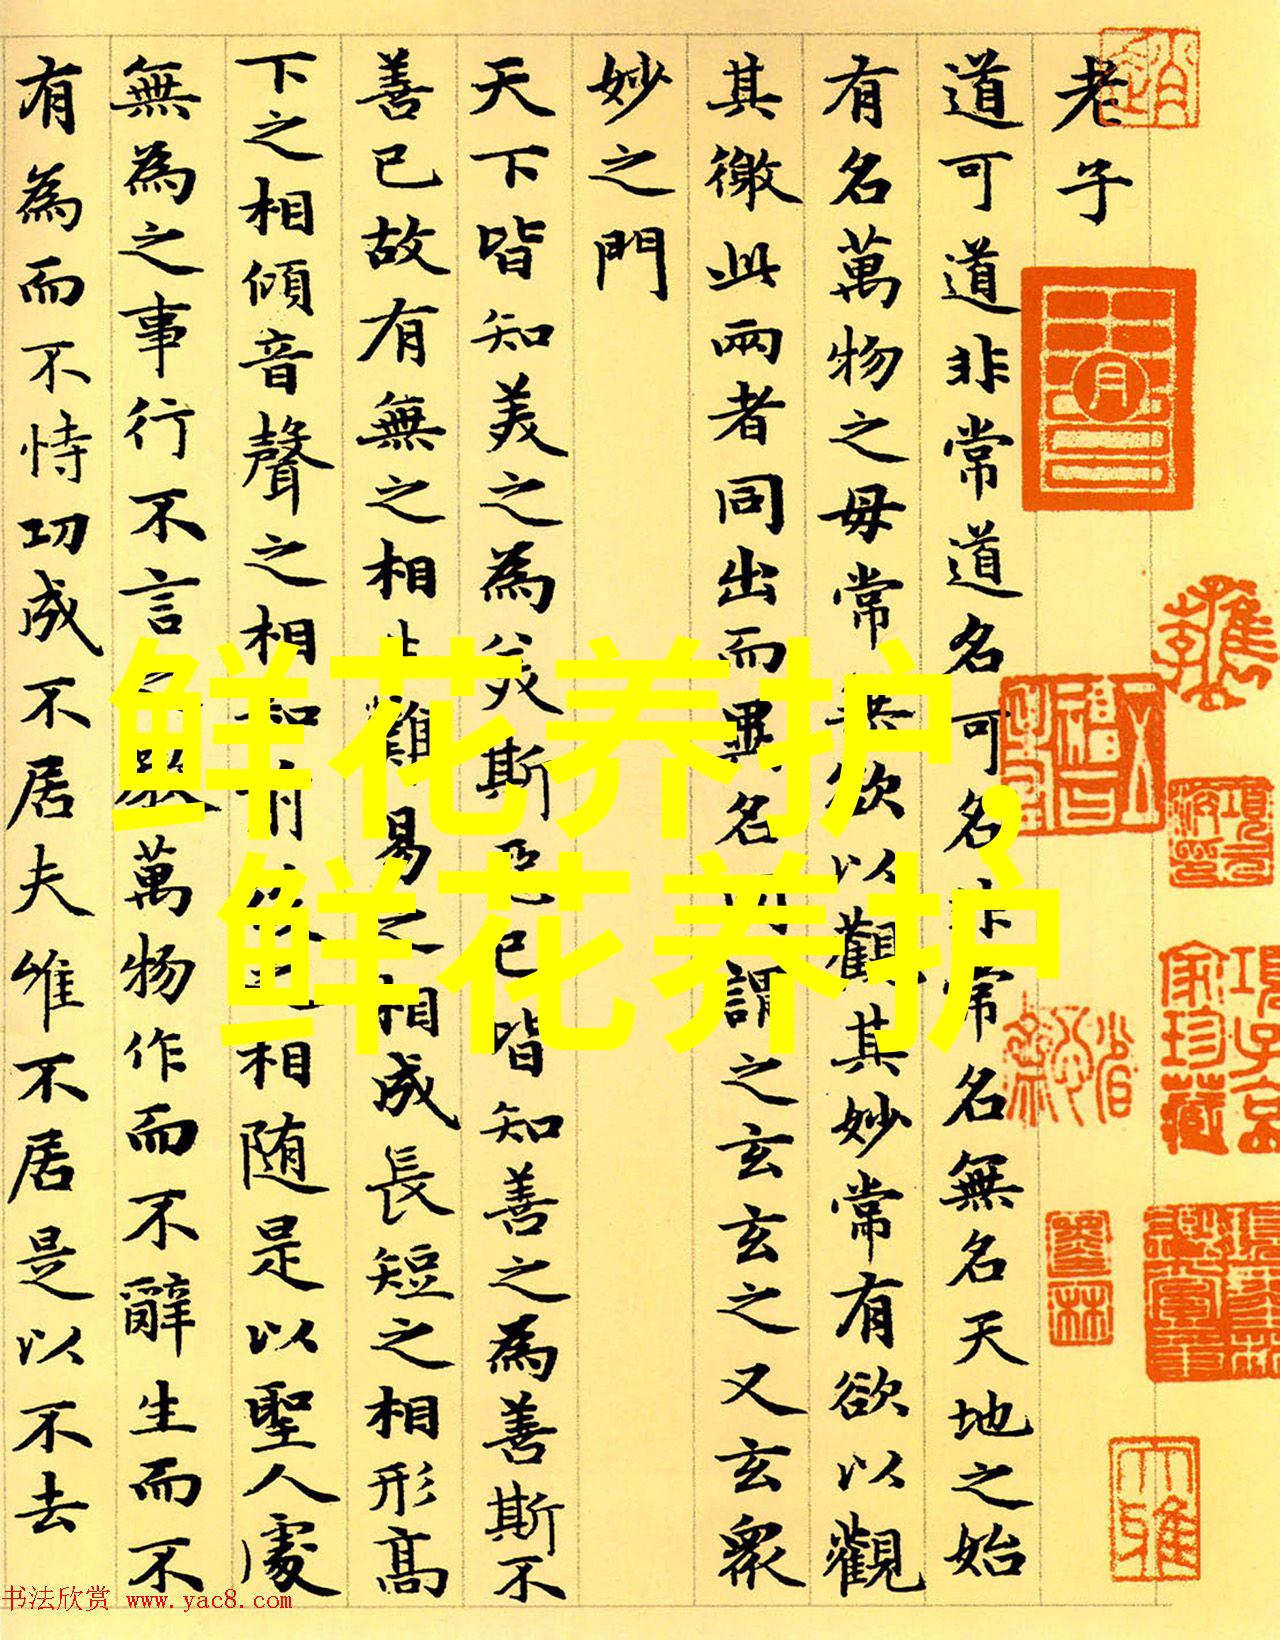 老子
道可道非常道名可名非常名無名天地之始
有名萬物之母常無欲以觀其妙常有欲以觀
其徼此兩者同出而異名同謂之玄玄之又玄衆
妙之門
天下皆知美之為美斯惡已皆知善之為善斯不
善已故有無之相生難易之相成長短之相形高
下之相傾音聲之相和前後之相随是以聖人處
無為之事行不言之教萬物作而不辭生而不
有為而不恃功成不居夫唯不居是以不去
鲜花养护,
鲜花养护
项子京
家珍藏
大雅
书法欣赏 www.yac8.com